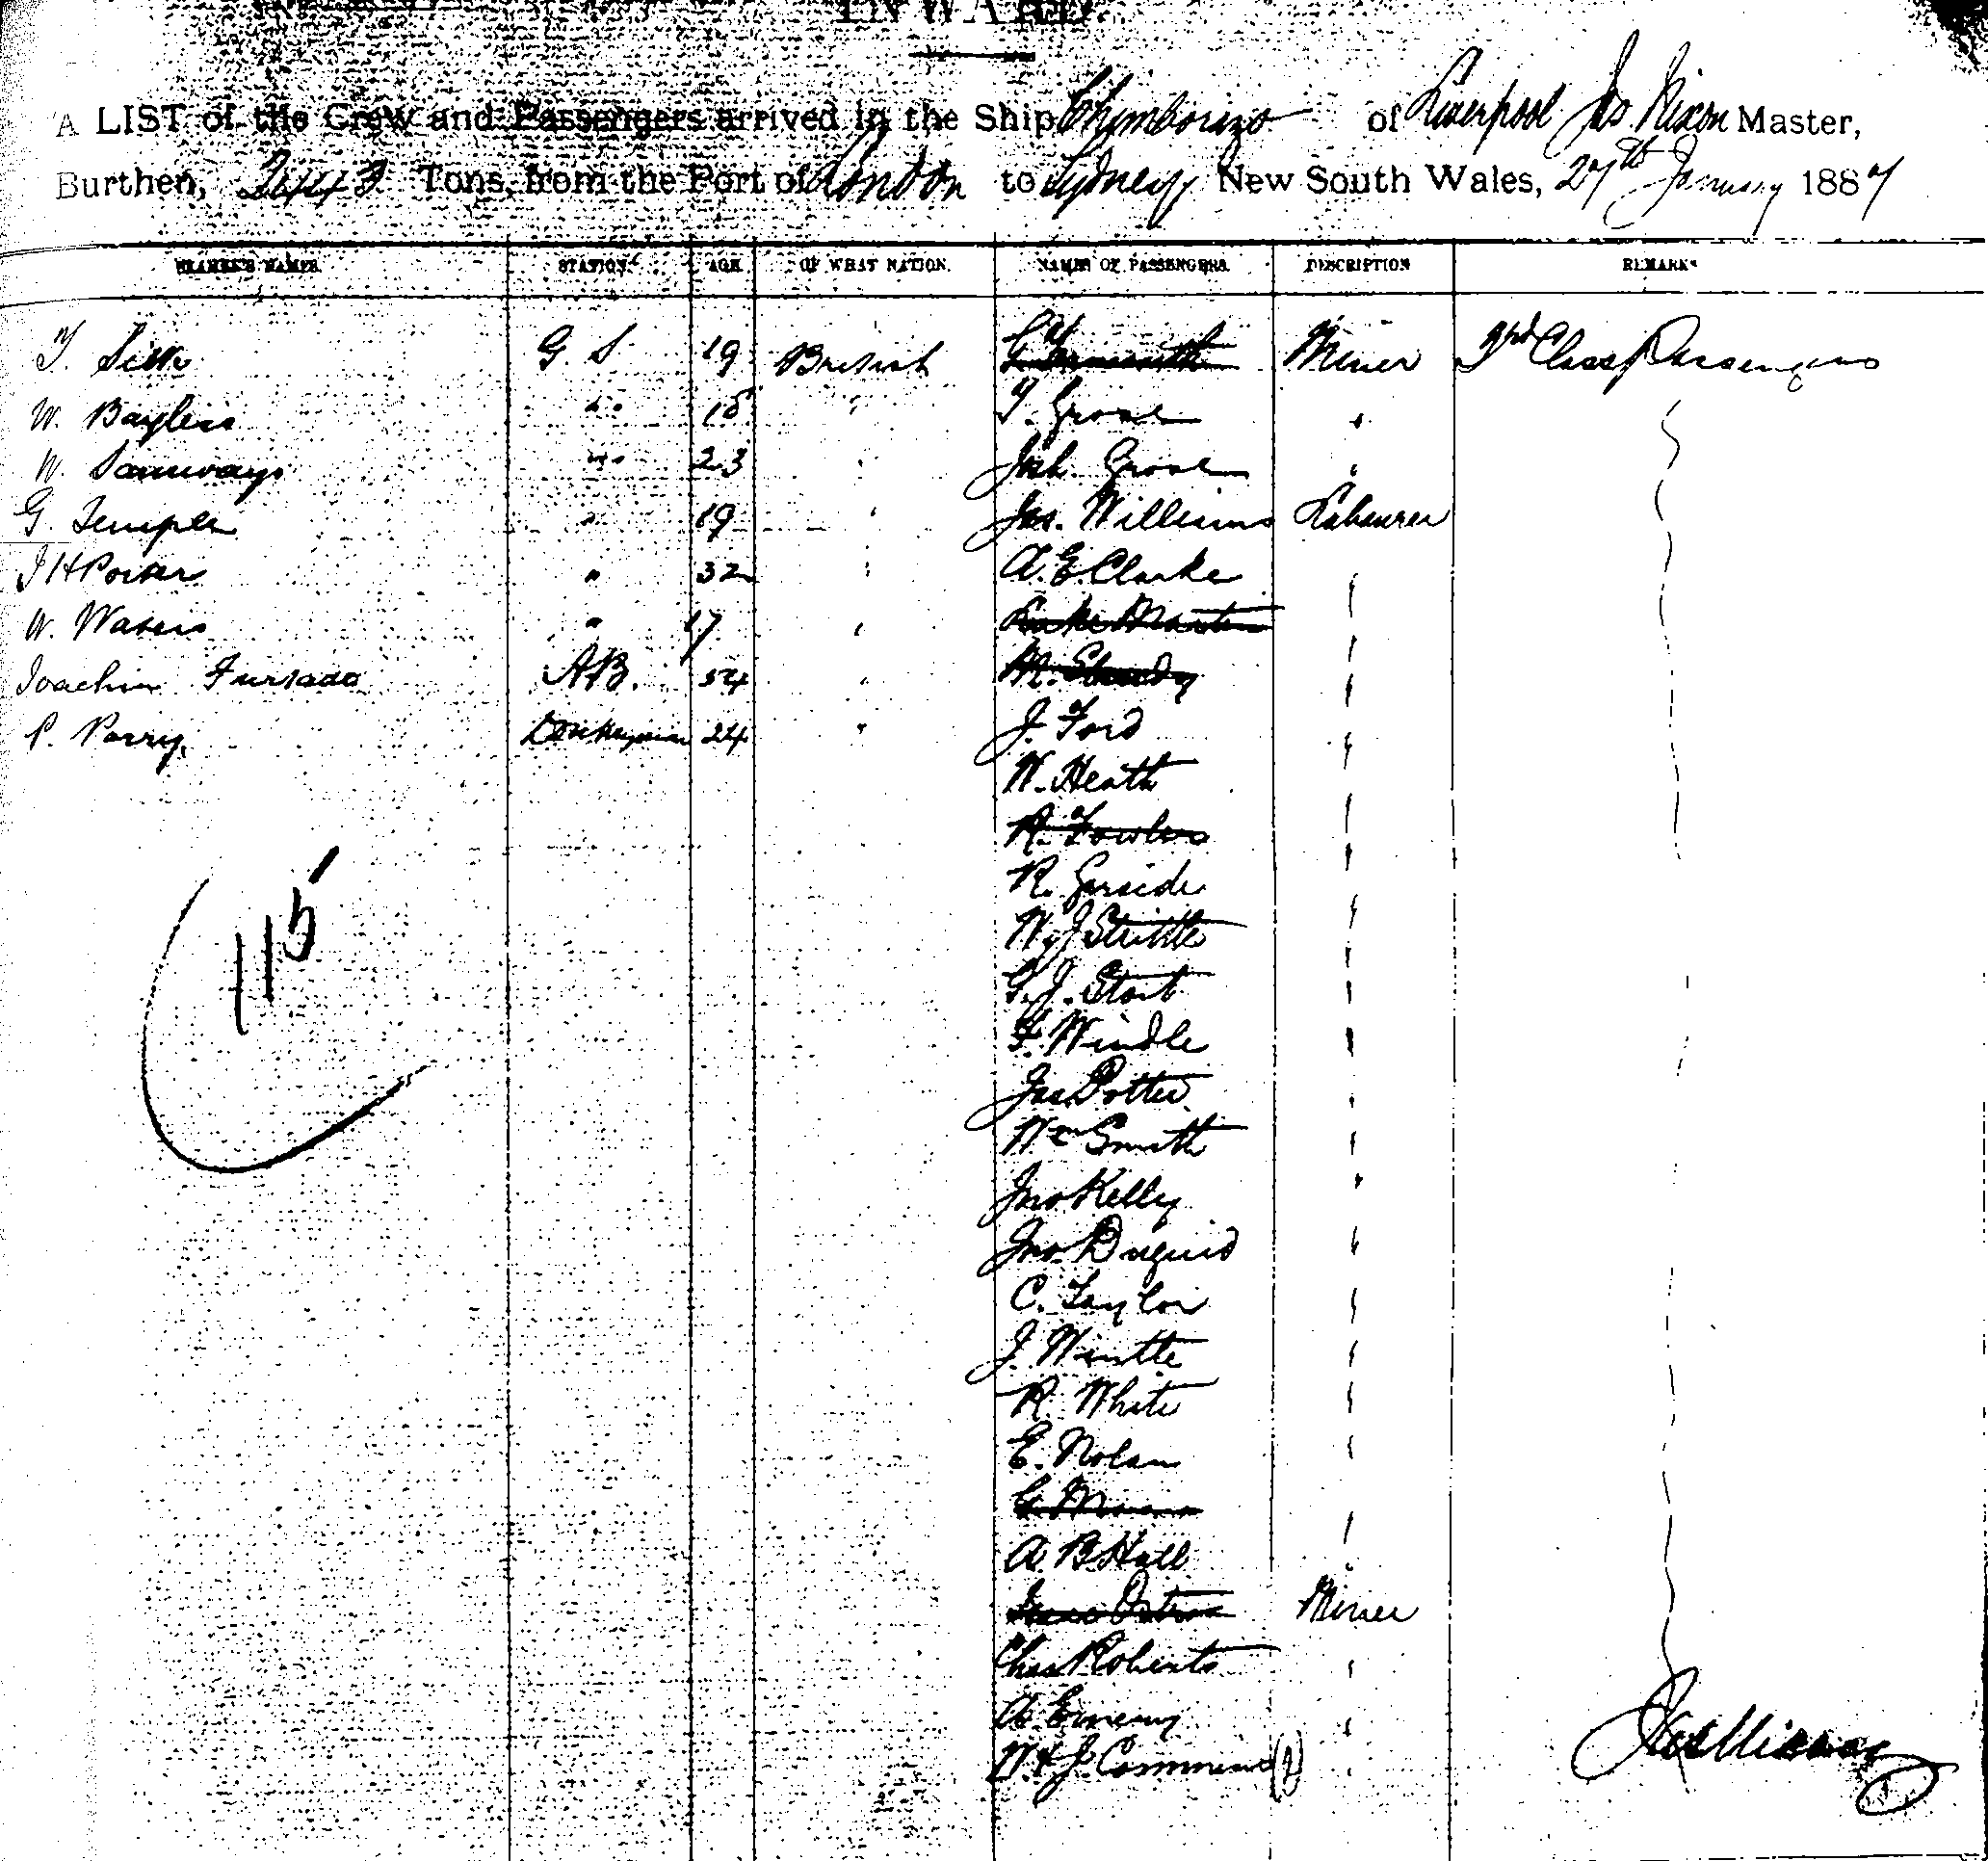 INWARD.
A LIST of the Crew and Passengers arrived in the Ship Chimborazo of Liverpool Jno Nixon Master,
Burthen, 2443 Tons, from the Port of London to Sydney, New South Wales, 27th January 1887
SEAMEN'S NAMES. STATION. AGE. OF WHAT NATION. NAMES OF PASSENGERS. DESCRIPTION REMARKS
G S 19 British Miner 3rd Class Passengers
W. Bayliss " 18 " T. Grose "
W. Samways " 23 " Josh. Grose "
G. Temple " 19 " Jas. Williams Labourer
J H Porter " 32 " A. E. Clarke
W. Waters " 17 " Luke Martin
Joachim Furtado A.B. 54 "
P. Parry. Donkeyman 24 " J. Ford
W. Heath
R. Fowler
R. Garside
W. J.
G. J. Stort
F. Windle
Jas Potter
Wm Smith
Jno Kelly
Jno. Duguid
C. Taylor
J. Wintle
R. White
E. Nolan
A. B. Hall
Miner
Chas Roberts
115